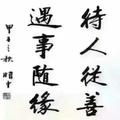 待人從善
遇事随缘
甲午之秋